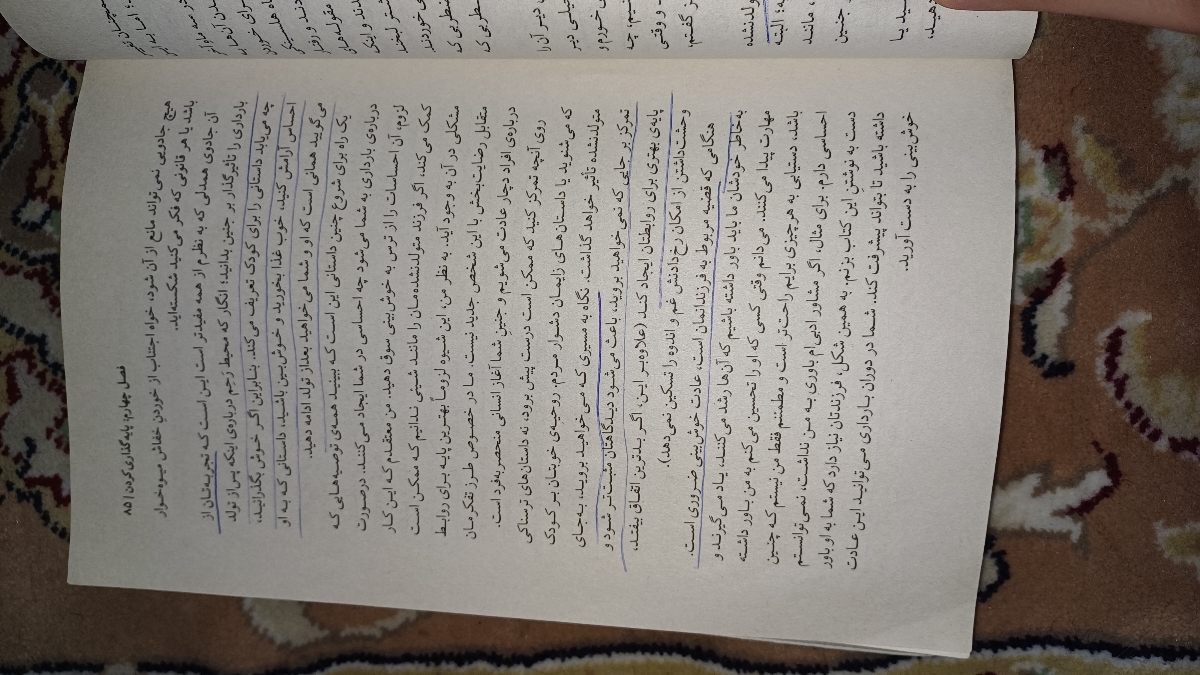 فصل چهارم: پایه‌گذاری کردن | ۸۵
هیچ جادویی نمی‌تواند مانع از آن شود، خواه اجتناب از خوردن خفاش میوه‌خوار
باشد یا هر قانونی که فکر می‌کنید شکسته‌اید.
آن جادوی همدلی که به نظرم از همه مفیدتر است این است که تجربه‌تان از
بارداری را تأثیرگذار بر جنین بدانید؛ انگار که محیط رحم درباره‌ی اینکه پس از تولد
چه می‌یابد داستانی را برای کودک تعریف می‌کند. بنابراین اگر خوش بگذرانید،
احساس آرامش کنید، خوب غذا بخورید و خوش‌بین باشید، داستانی که به او
می‌گویید همانی است که او و شما می‌خواهید بعداز تولد ادامه دهید.
یک راه برای شروع چنین داستانی این است که ببینید همه‌ی توصیه‌هایی که
درباره‌ی بارداری به شما می‌شود چه احساسی در شما ایجاد می‌کنند. درصورت
لزوم، آن احساسات را از ترس به خوش‌بینی سوق دهید. من معتقدم که این کار
کمک می‌کند، اگر فرزند متولدنشده‌مان را مانند شیئی ندانیم که ممکن است
مشکلی در آن به وجود آید. به نظر من، این شیوه لزوماً بهترین پایه برای روابط
متقابل رضایت‌بخش با این شخص جدید نیست. ما در خصوص طرز تفکرمان
درباره‌ی افراد دچار عادت می‌شویم و جنین شما آغاز انسانی منحصربه‌فرد است.
روی آنچه تمرکز کنید که ممکن است درست پیش برود، نه داستان‌های ترسناکی
که می‌شنوید یا داستان‌های زایمان دشوار مردم. روحیه‌ی خوبتان بر کودک
متولدنشده تأثیر خواهد گذاشت. نگاه به مسیری که می‌خواهید بروید، به‌جای
تمرکز بر جایی که نمی‌خواهید بروید، باعث می‌شود دیدگاهتان مثبت‌تر شود و
پایه‌ی بهتری برای روابطتان ایجاد کند (علاوه‌بر این، اگر بدترین اتفاق بیفتد،
وحشت‌داشتن از امکان رخ‌دادنش غم و اندوه را تسکین نمی‌دهد).
هنگامی که قضیه مربوط به فرزندانمان است، عادت خوش‌بینی ضروری است.
به‌خاطر خودشان ما باید باور داشته باشیم که آن‌ها رشد می‌کنند، یاد می‌گیرند و
مهارت پیدا می‌کنند. می‌دانم وقتی کسی که او را تحسین می‌کنم به من باور داشته
باشد، دستیابی به هرچیزی برایم راحت‌تر است و مطمئنم فقط من نیستم که چنین
احساسی دارم. برای مثال، اگر مشاور ادبی‌ام باوری به من نداشت، نمی‌توانستم
دست به نوشتن این کتاب بزنم. به همین شکل فرزندتان نیاز دارد که شما به او باور
داشته باشید تا بتواند پیشرفت کند. شما در دوران بارداری می‌توانید این عادت
خوش‌بینی را به دست آورید.